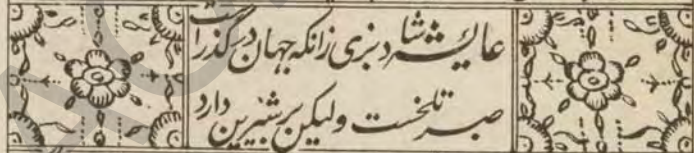 عایشه شاد بزی زانکه جهان در گذرا ست
صبر تلخست ولیکن بر شیرین دارد